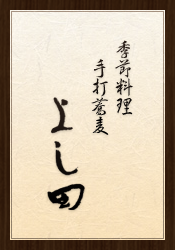 季節料理
手打蕎麦
よし田